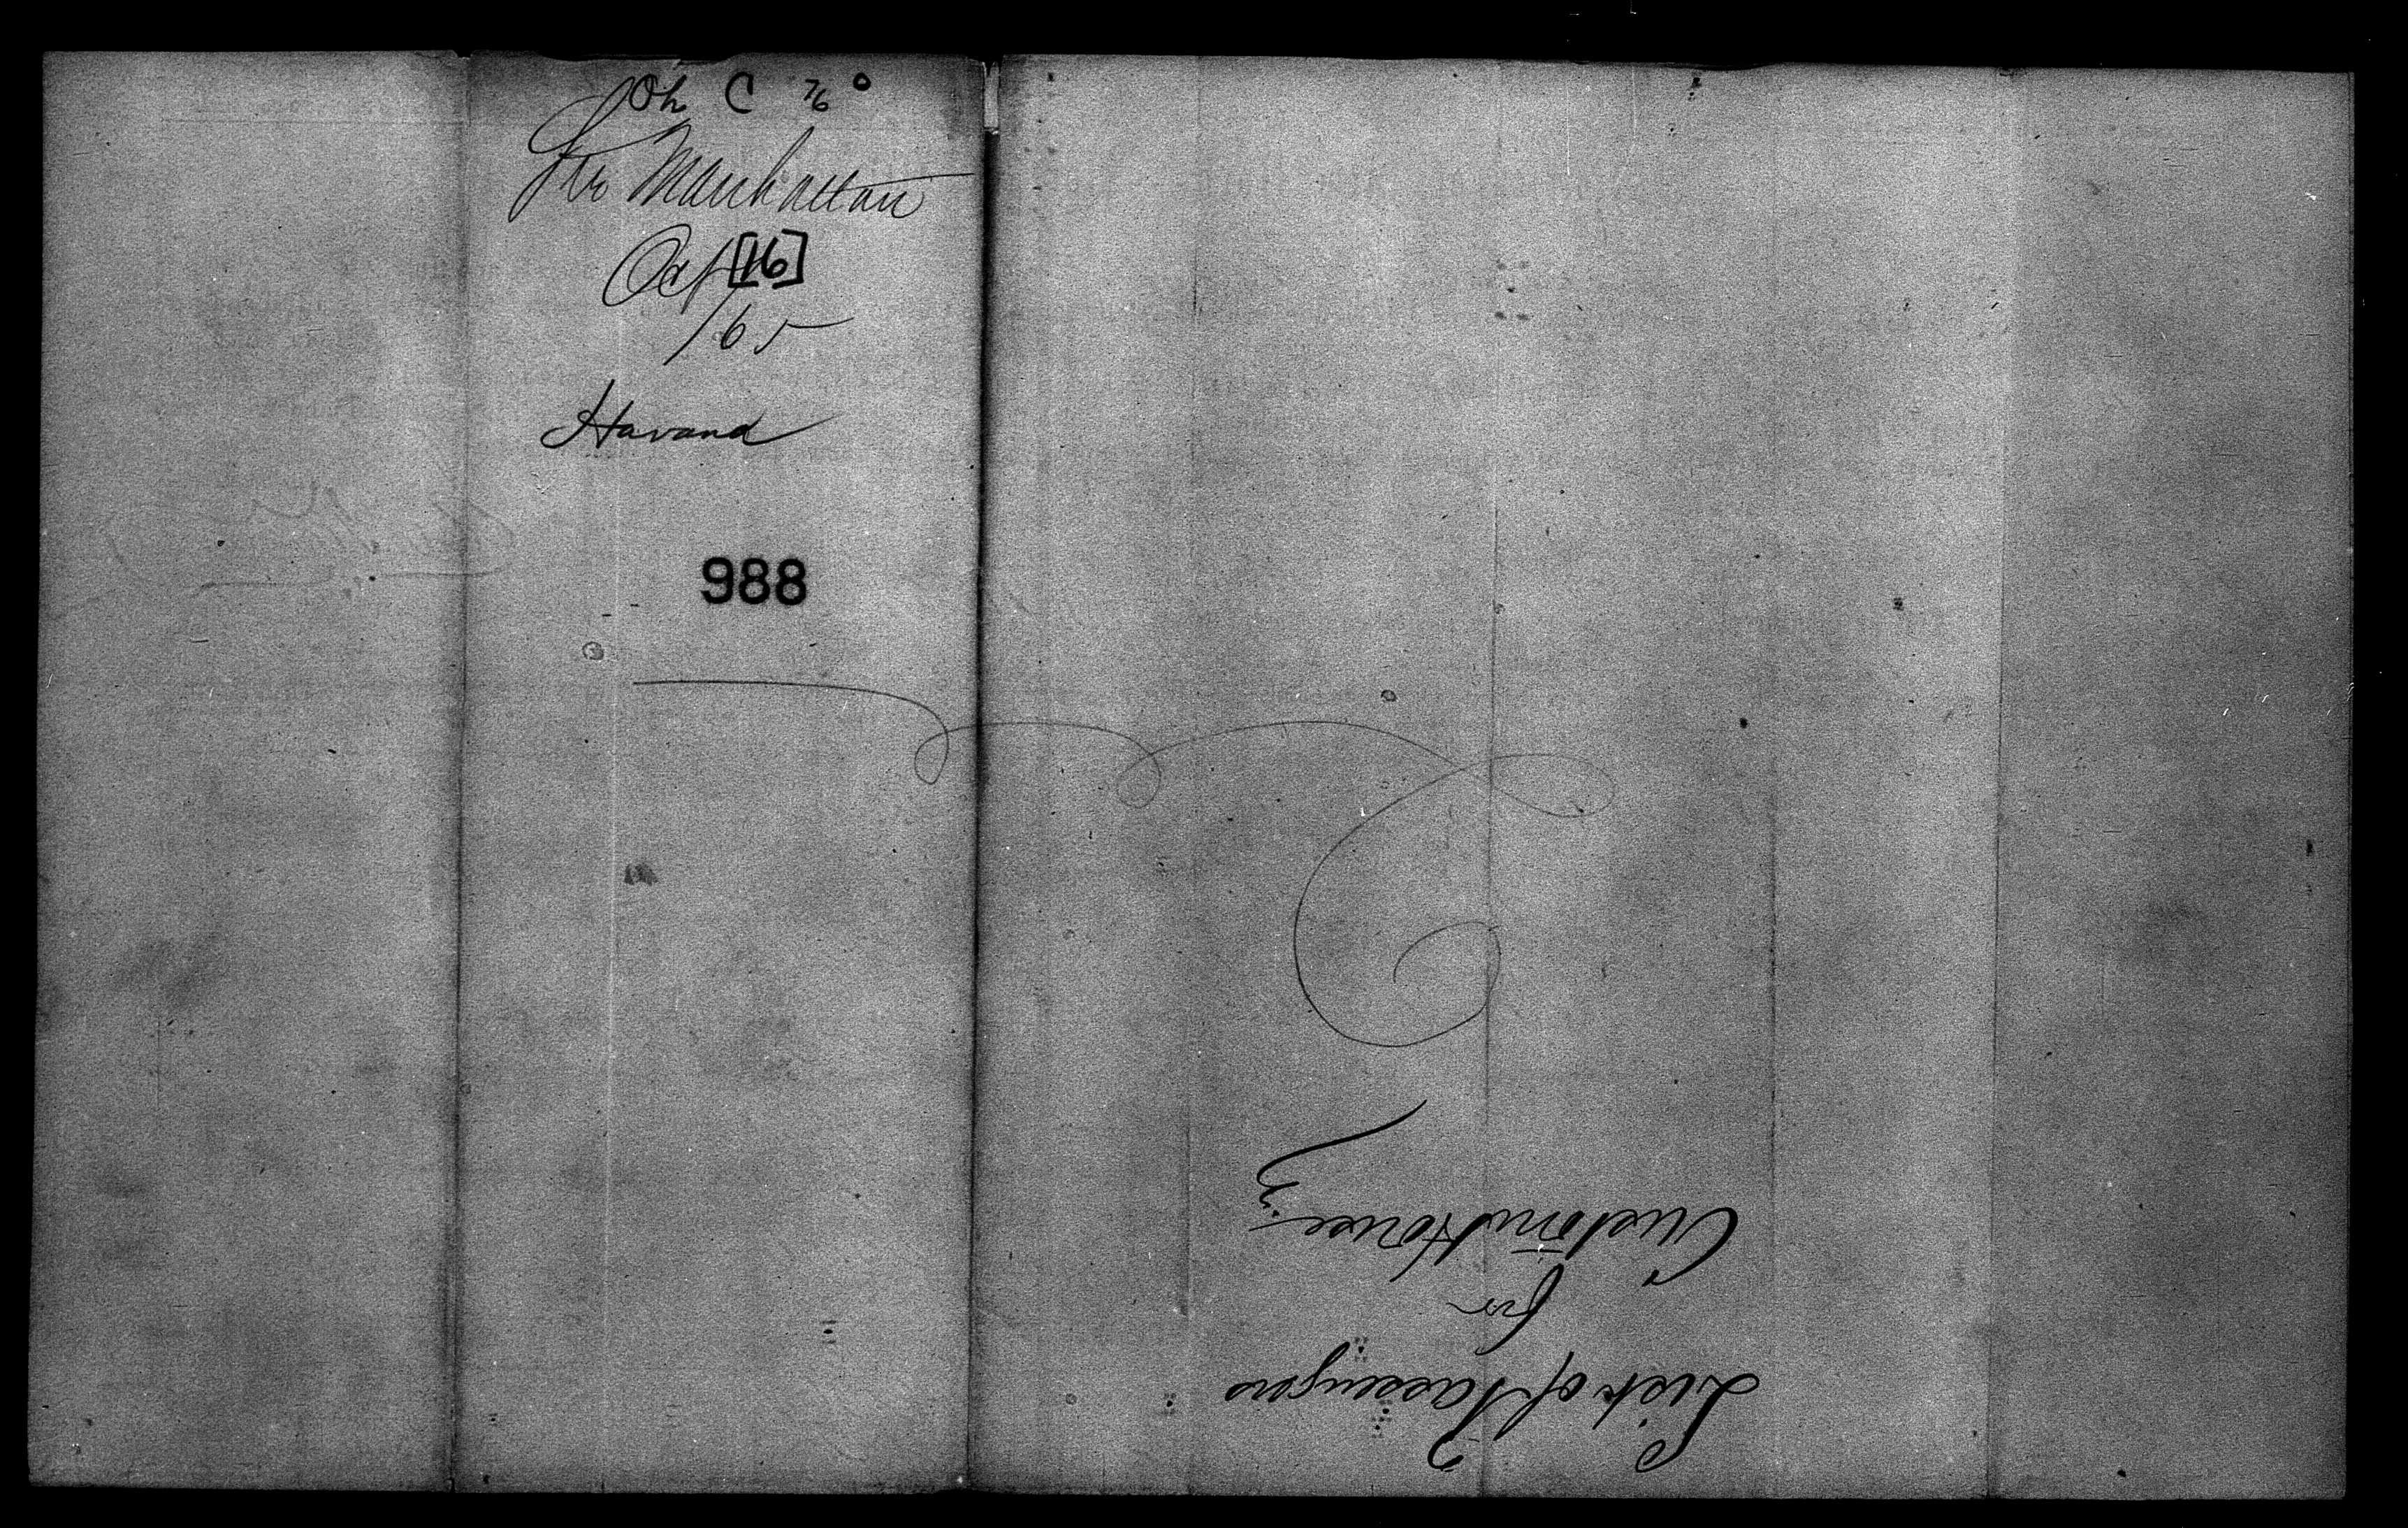 Oh C 76 0
Str Manhattan
Oct [16]
/65
Havana
988
List of Passengers
for
Custom House